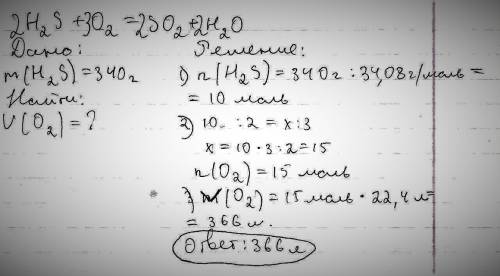 2H₂S + 3O₂ = 2SO₂ + 2H₂O
Дано:
m(H₂S) = 340г
Найти:
V(O₂) = ?
Решение:
1) n(H₂S) = 340г : 34,08г/моль =
= 10 моль
2) 10 : 2 = x : 3
x = 10 · 3 : 2 = 15
n(O₂) = 15 моль
3) (O₂) = 15 моль · 22,4 л =
= 366 л.
Ответ: 366 л